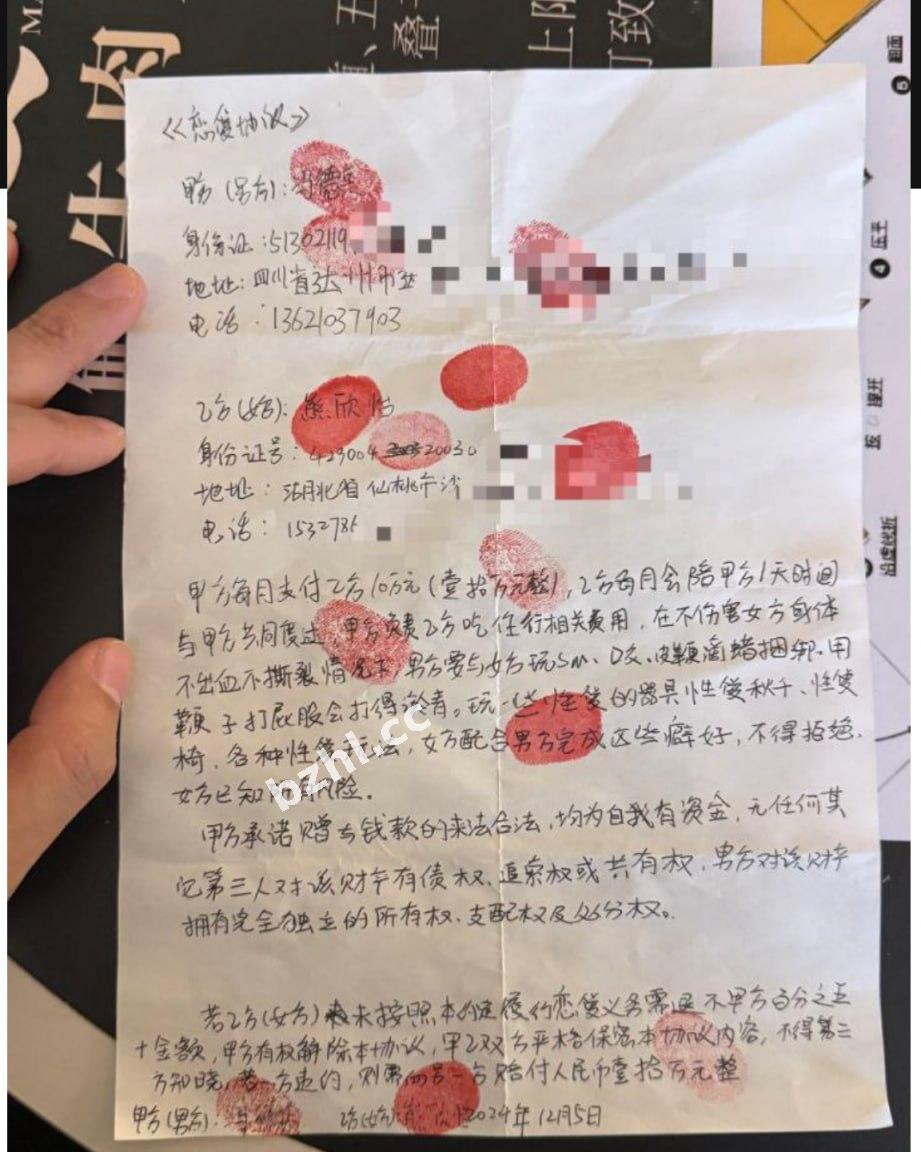 生肉
上
叠
致
5
4 压平
按 C 捏开
沿虚伙折
《恋爱协议》
甲方(男方):冯德
身份证:51302119
地址:四川省达州市
电话:13621037903
乙方(女方):熊欣怡
身份证号:429004 20030
地址:湖北省仙桃市沙
电话:1532785
甲方每月支付乙方10万元(壹拾万元整),乙方每月会陪甲方1天时间
与甲方共同度过,甲方负责乙方吃住行相关费用,在不伤害女方身体
不出血不撕裂情况下,男方要与女方玩SM、口交、皮鞭滴蜡捆绑、用
鞭子打屁股会打得淤青。玩一些性爱的器具性爱秋千、性爱
椅、各种性爱玩法,女方配合男方完成这些癖好,不得拒绝,
女方已知所有风险。
甲方承诺赠与钱款的来法合法,均为自我有资金,无任何其
它第三人对该财产有债权、追索权或共有权,男方对该财产
拥有完全独立的所有权、支配权及处分权。
若乙方(女方)未按照本约定履约恋爱义务需退还甲方百分之五
十金额,甲方有权解除本协议,甲乙双方严格保密本协议内容,不得第三
方知晓,若一方违约,则需向另一方赔付人民币壹拾万元整
甲方(男方): 乙方(女方): 2024年12月5日
bzhl.cc